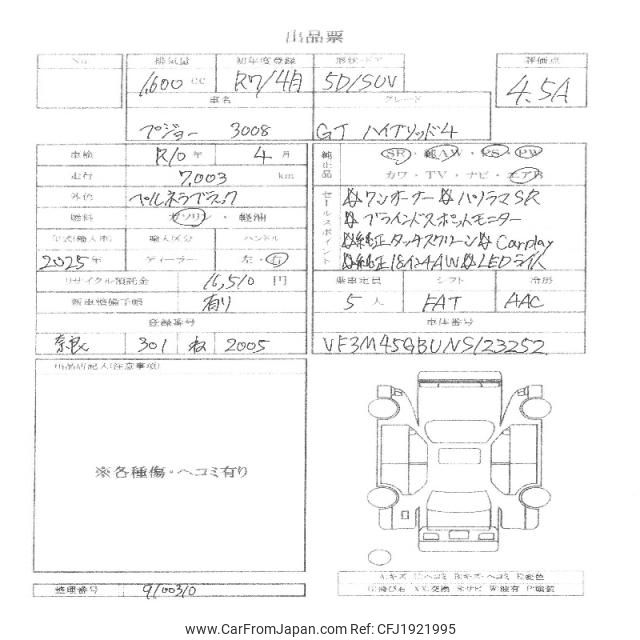 出品票
No. 排気量 初年度登録 形状・ドア 評価点
1,600 cc R7/4月 5D/SUV 4.5A
車名 グレード
プジョー 3008 GT ハイブリッド4
車検 R10年 4月
走行 7,003 km
外色 ペルネラブラック
燃料 ガソリン・軽油
年式(輸入車) 輸入区分 ハンドル
2025年 ディーラー 左・右
リサイクル預託金 16,510 円
新車整備手帳 有り
登録番号
奈良 301 ね 2005
純正品 SR・AW・PS・PW
カワ・TV・ナビ・エアB
セールスポイント
☆ワンオーナー☆パノラマSR
☆ブラインドスポットモニター
☆純正タッチスクリーン☆Carplay
☆純正18インチAW☆LEDライト
乗車定員 シフト 冷房
5人 FAT AAC
車体番号
VF3M45GBUNS123252
出品店記入(注意事項)
※各種傷・ヘコミ有り
A:キズ U:ヘコミ B:キズ・ヘコミ
整理番号 9100310
www.CarFromJapan.com - Ref: CFJ1921995